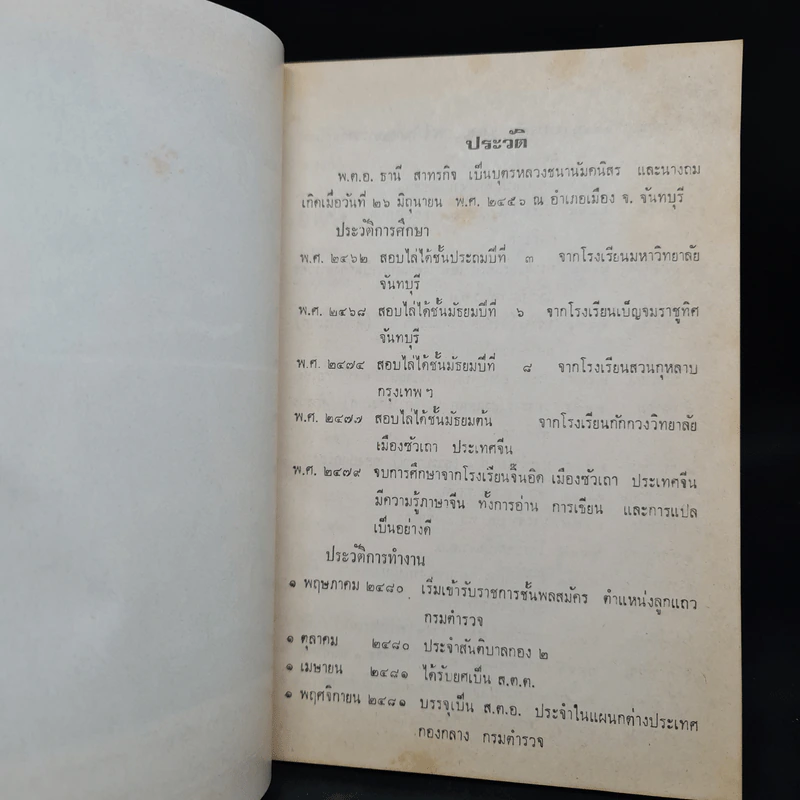 ประวัติ
พ.ต.อ. ธานี สาทรกิจ เป็นบุตรหลวงชนานัมคนิสร และนางถม
เกิดเมื่อวันที่ ๒๖ มิถุนายน พ.ศ. ๒๔๕๖ ณ อำเภอเมือง จ. จันทบุรี
ประวัติการศึกษา
พ.ศ. ๒๔๖๒ สอบไล่ได้ชั้นประถมปีที่ ๓ จากโรงเรียนมหาวิทยาลัย
จันทบุรี
พ.ศ. ๒๔๖๘ สอบไล่ได้ชั้นมัธยมปีที่ ๖ จากโรงเรียนเบ็ญจมราชูทิศ
จันทบุรี
พ.ศ. ๒๔๗๔ สอบไล่ได้ชั้นมัธยมปีที่ ๘ จากโรงเรียนสวนกุหลาบ
กรุงเทพฯ
พ.ศ. ๒๔๗๗ สอบไล่ได้ชั้นมัธยมต้น จากโรงเรียนกักกวงวิทยาลัย
เมืองซัวเถา ประเทศจีน
พ.ศ. ๒๔๗๙ จบการศึกษาจากโรงเรียนจิ๊นอิด เมืองซัวเถา ประเทศจีน
มีความรู้ภาษาจีน ทั้งการอ่าน การเขียน และการแปล
เป็นอย่างดี
ประวัติการทำงาน
๑ พฤษภาคม ๒๔๘๐ เริ่มเข้ารับราชการชั้นพลสมัคร ตำแหน่งลูกแถว
กรมตำรวจ
๑ ตุลาคม ๒๔๘๐ ประจำสันติบาลกอง ๒
๑ เมษายน ๒๔๘๑ ได้รับยศเป็น ส.ต.ต.
๑ พฤศจิกายน ๒๔๘๑ บรรจุเป็น ส.ต.อ. ประจำในแผนกต่างประเทศ
กองกลาง กรมตำรวจ